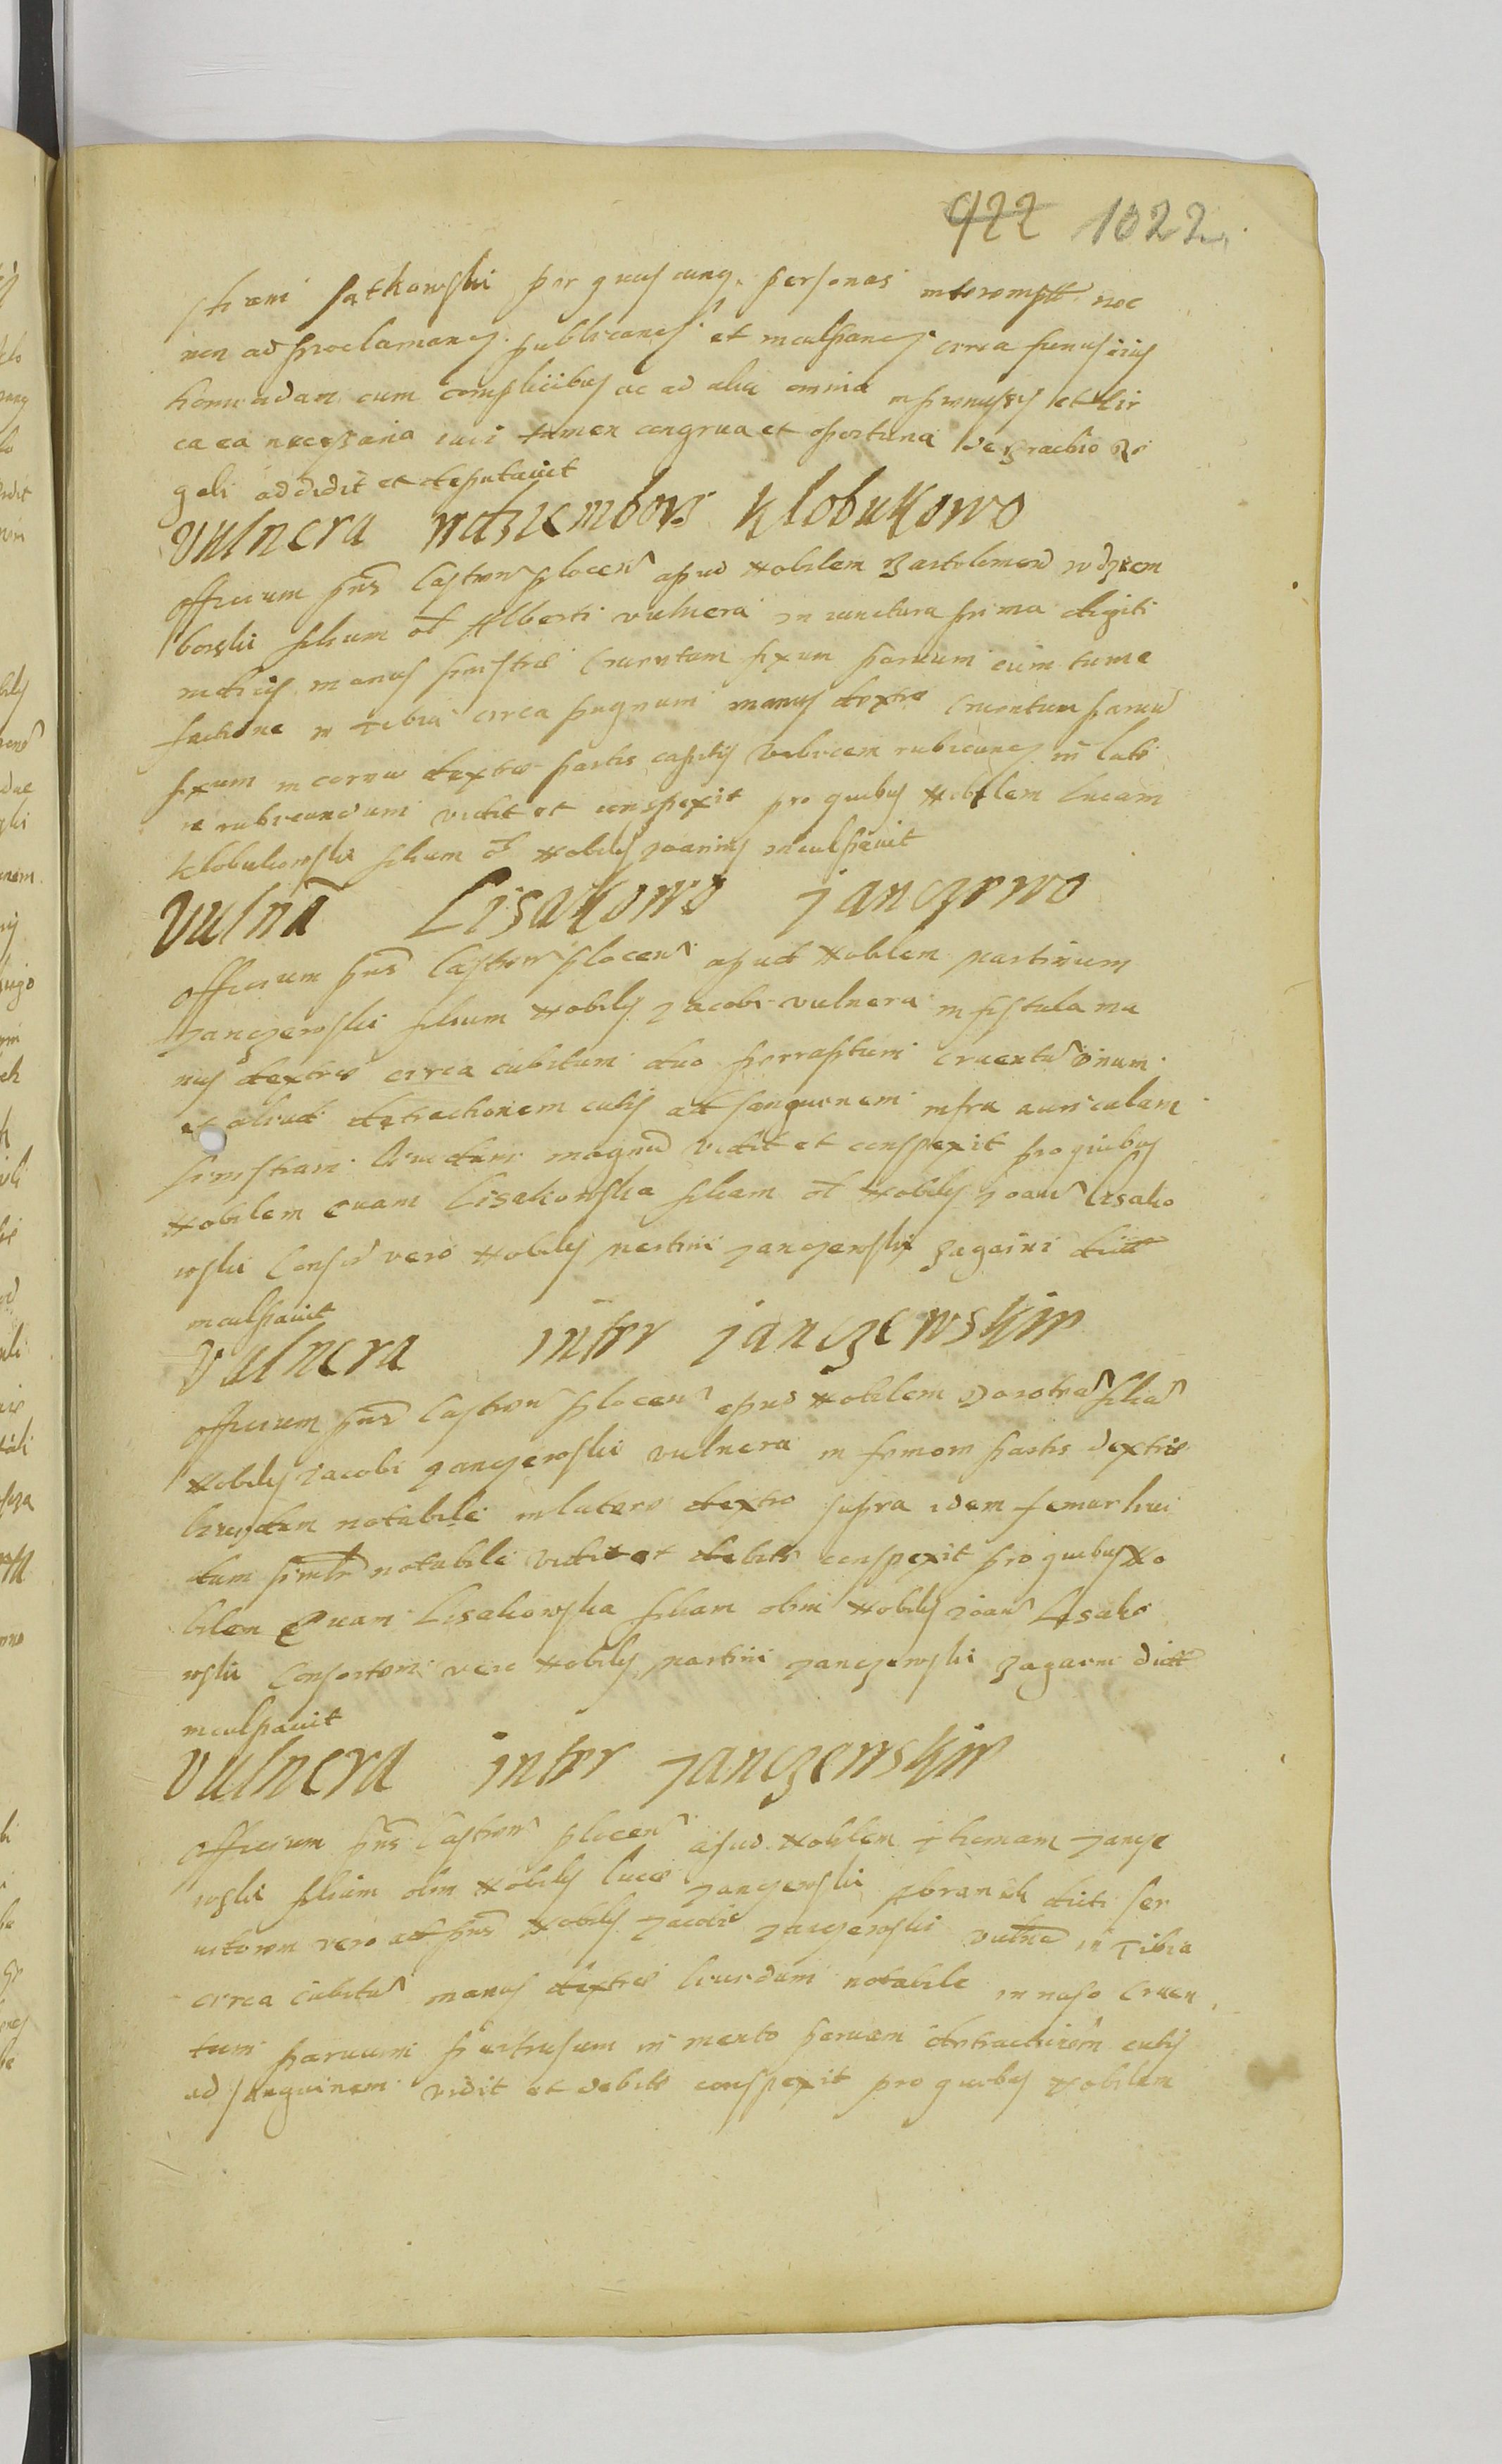 922 1022
Satkowski per quascunq personas interempti nec
non ad proclamand publicand et inculpand circa funus eius
homicidam cum complicibus ac ad alia omnia in premissis et cir
ca ea necessaria iuri tamen congrua et oportuna de gracia Re
gali addidit et deputavit
Vulnera Wdziembors Klobukowo
Officium pns Castren plocen apud Nobilem Bartolomeu wdziem
borski filium ol Alberti vulnera in iunctura prima digiti
medicij manus sinistre Cruentum fixum paruum cum tume
factione in tibia circa pugnum manus dextre Cruentum paruu
fixum in cornu dextre partis capitis vibicem rubicund in late
re rubicundum vidit et conspexit pro quibus Nobilem Lucam
Klobukowski filium ol Nobilis Joannis inculpauit
Vulna Lisakowo Janczewo
Officium pns Castren plocen apud Nobilem Martinum
Janczewski filium Nobilis Jacobi vulnera in fistula ma
nus dextre circa cubitum duo cruentu vnum
et aliud detractionem cutis ad sanguinem infra auriculam
sinistram liuidum magnu vidit et conspexit pro quibus
Nobilem Euam Lisakowska filiam ol Nobilis Joan Lisako
wski vero Nobilis Martini Janczewski Zagaini dict
inculpauit
Vulnera inter Janczewskie
Officium pns Castren plocen apud Nobilem Dorothea filia
Nobilis Jacobi Janczewski vulnera in femore partis dextre
liuidum notabile in latere dextro supra idem femur liui
dum similr notabile vidit et debite conspexit pro quibus No
bilem Euam Lisakowska filiam olim Nobilis Joan Lisako
wski Consortem vero Nobilis Martini Janczewski Zagaini dict
inculpauit
Vulnera inter Janczewskie
Officium pns Castren plocen apud Nobilem Thomam Jancze
wski filium olim Nobilis Luce Janczewski dicti ser
uitorem vero ad pns Nobilis Jacobi Janczewski vulna in Tibia
circa cubitu manus dextre liuidum notabile in naso Cruen
tum paruum in mento paruam detractionem cutis
ad sanguinem vidit et debite conspexit pro quibus Nobilem